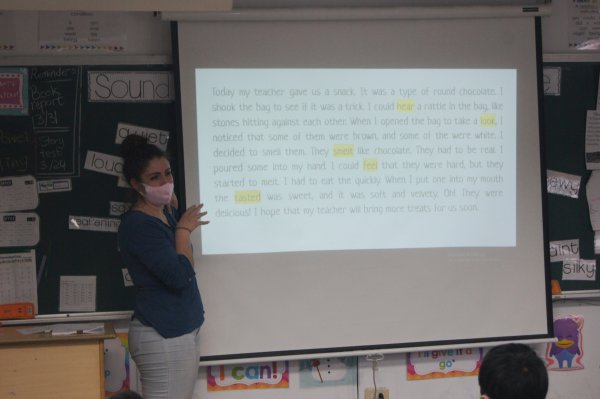 Reminders
Book
report
3/31
Story
Test
3/24
Sound
quiet
loud
Today my teacher gave us a snack. It was a type of round chocolate. I
shook the bag to see if it was a trick. I could hear a rattle in the bag, like
stones hitting against each other. When I opened the bag to take a look, I
noticed that some of them were brown, and some of the were white. I
decided to smell them. They smelt like chocolate. They had to be real. I
poured some into my hand. I could feel that they were hard, but they
started to melt. I had to eat the quickly. When I put one into my mouth
the tasted was sweet, and it was soft and velvety. Oh! They were
delicious! I hope that my teacher will bring more treats for us soon.
silky
I can!
I'll give it a
go